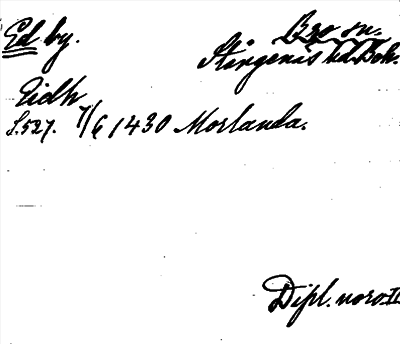 Ed by.
Bro sn.
Stångenäs hd. Boh.
Eidh
S. 527. 7/6 1430 Morlanda.
Dipl. norv. II